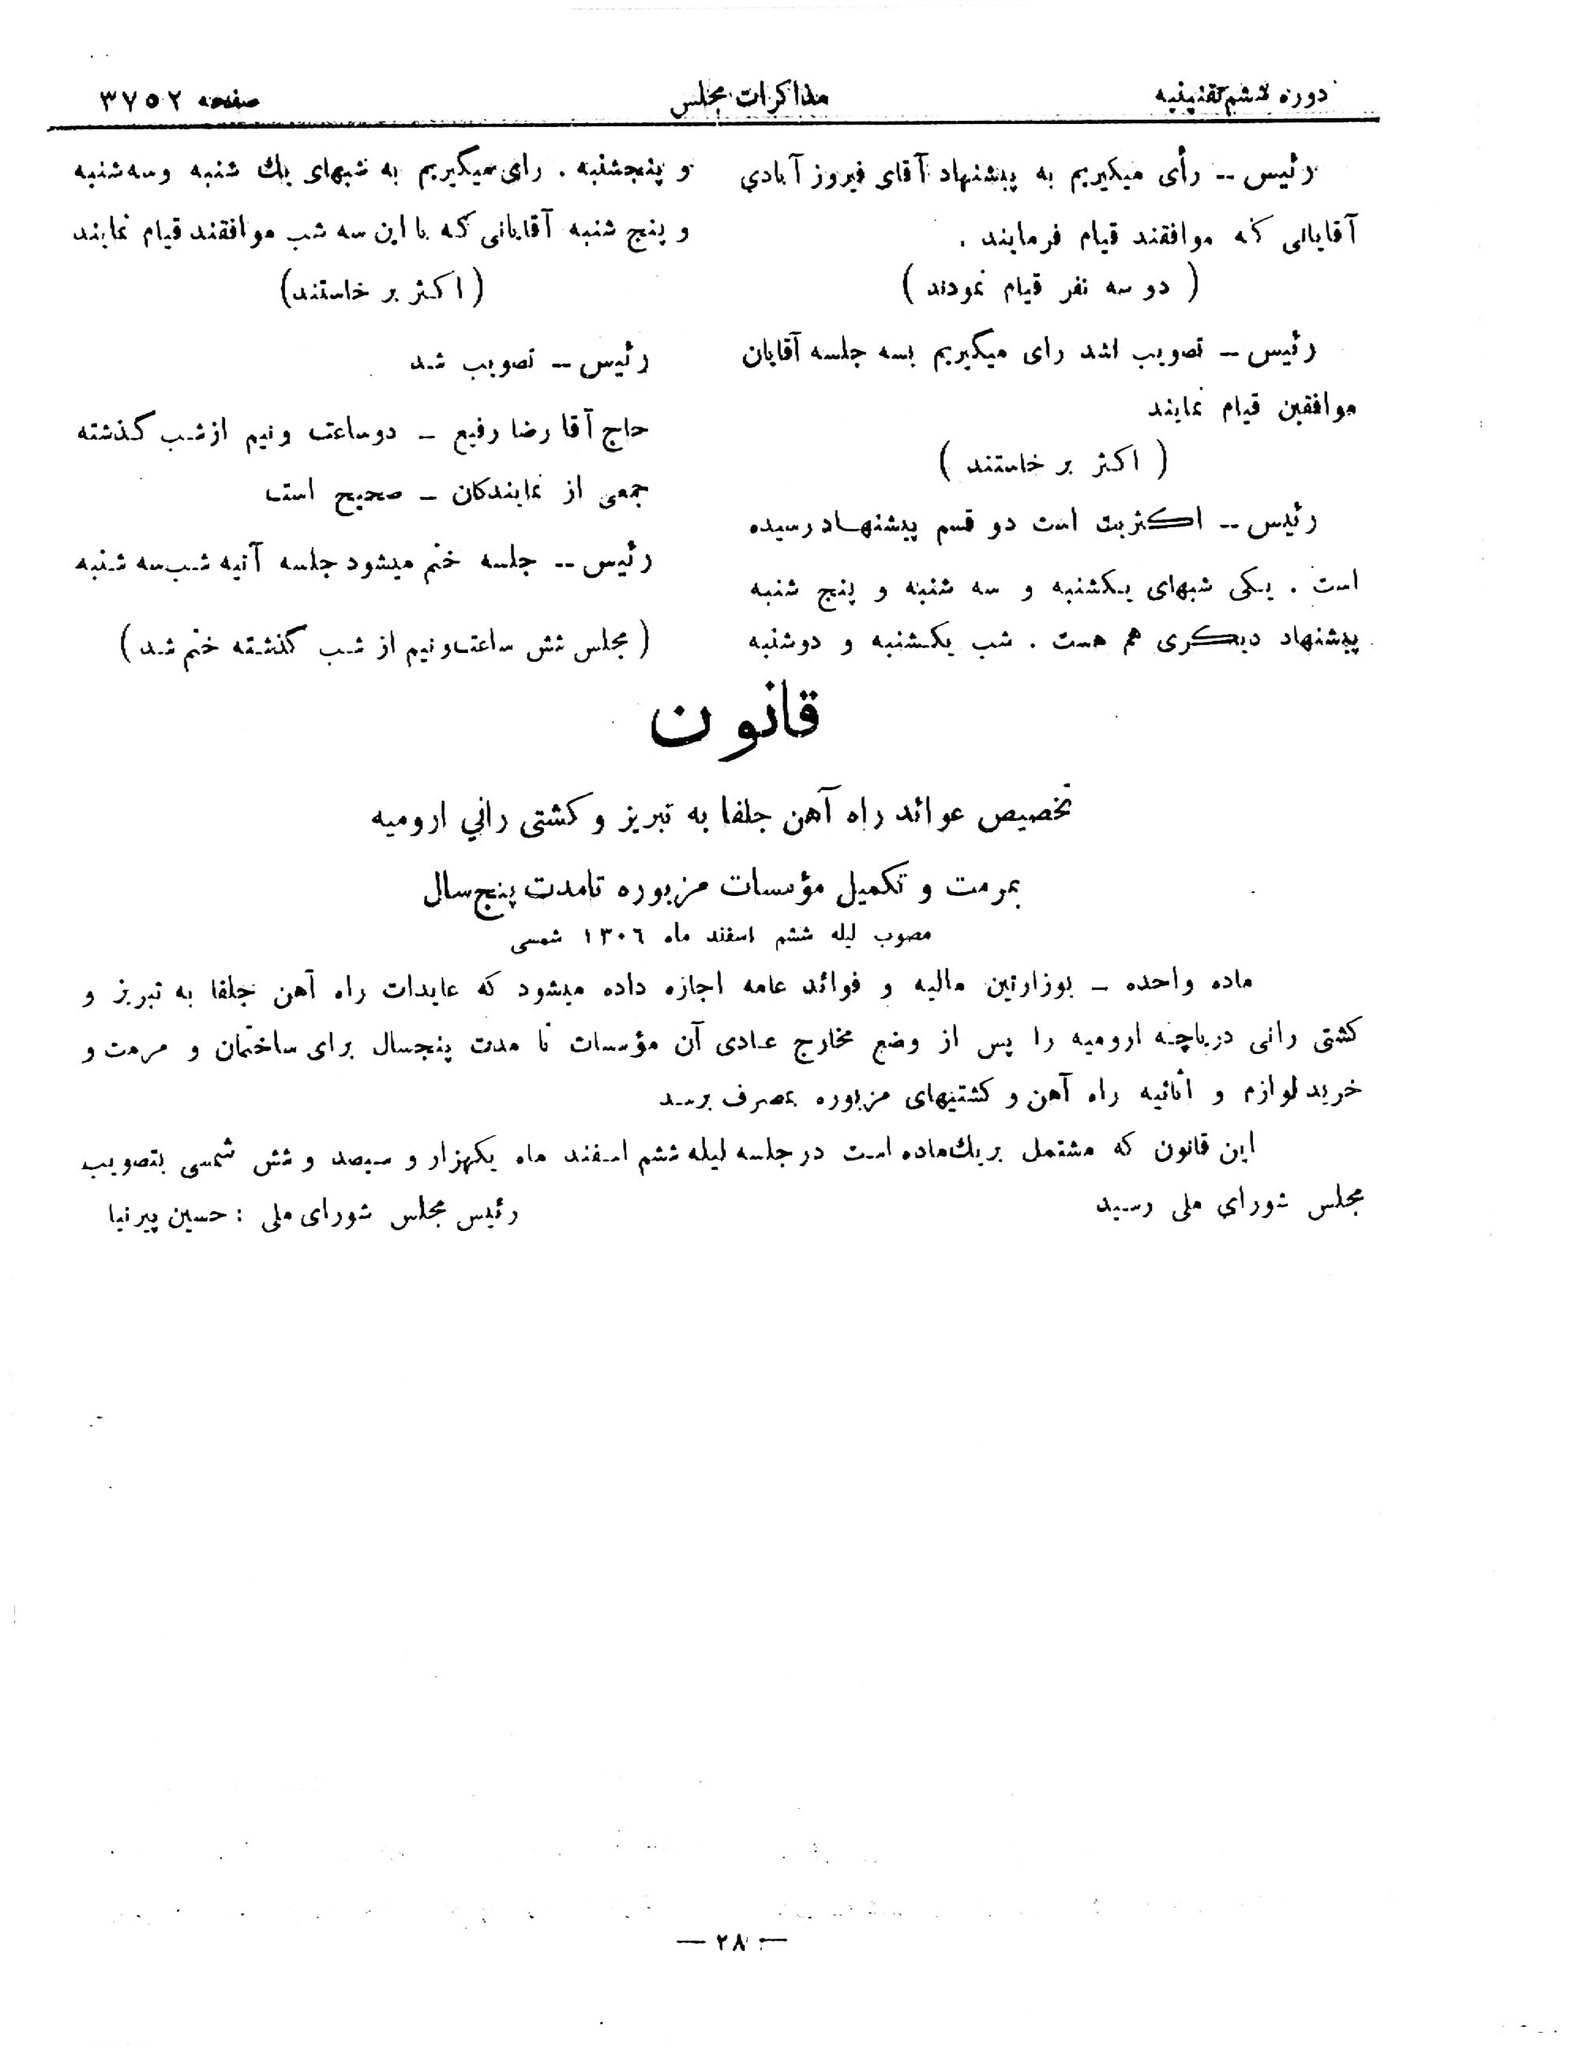 دوره ششم تقنینیه
مذاکرات مجلس
صفحه ۳۷۵۲
رئیس -- رأی میگیریم به پیشنهاد آقای فیروز آبادی
آقایانی که موافقند قیام فرمایند .
( دو سه نفر قیام نمودند )
رئیس -- تصویب نشد رای میگیریم بسه جلسه آقایان
موافقین قیام نمایند
( اکثر بر خاستند )
رئیس -- اکثریت است دو قسم پیشنهاد رسیده
است . یکی شبهای یکشنبه و سه شنبه و پنج شنبه
پیشنهاد دیگری هم هست . شب یکشنبه و دوشنبه
و پنجشنبه . رای میگیریم به شبهای یك شنبه و سه شنبه
و پنج شنبه آقایانی که با این سه شب موافقند قیام نمایند
( اکثر بر خاستند)
رئیس -- تصویب شد
حاج آقا رضا رفیع - دو ساعت و نیم از شب گذشته
جمعی از نمایندگان - صحیح است
رئیس -- جلسه ختم میشود جلسه آتیه شب سه شنبه
( مجلس شش ساعت و نیم از شب گذشته ختم شد )
قانون
تخصیص عوائد راه آهن جلفا به تبریز و کشتی رانی ارومیه
بمرمت و تکمیل مؤسسات مزبوره تا مدت پنج سال
مصوب لیله ششم اسفند ماه ۱۳۰۶ شمسی
ماده واحده - بوزارتین مالیه و فوائد عامه اجازه داده میشود که عایدات راه آهن جلفا به تبریز و
کشتی رانی دریاچه ارومیه را پس از وضع مخارج عادی آن مؤسسات تا مدت پنجسال برای ساختمان و مرمت و
خرید لوازم و اثاثیه راه آهن و کشتیهای مزبوره بمصرف برسد
این قانون که مشتمل بر یك ماده است در جلسه لیله ششم اسفند ماه یکهزار و سیصد و شش شمسی بتصویب
مجلس شورای ملی رسید
رئیس مجلس شورای ملی : حسین پیرنیا
— ۲۸ —